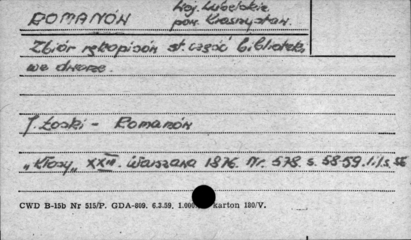 ROMANÓW
Woj. Lubelskie
pow. Krasnystaw.
Zbiór rękopisów st. część biblioteki
we dworze.
J. Łoski - Romanów
"Kłosy" XXIII. Warszawa 1876. Nr. 578. s. 58-59.
CWD B-15b Nr 515/P. GDA-809. 6.3.59, karton 180/V.